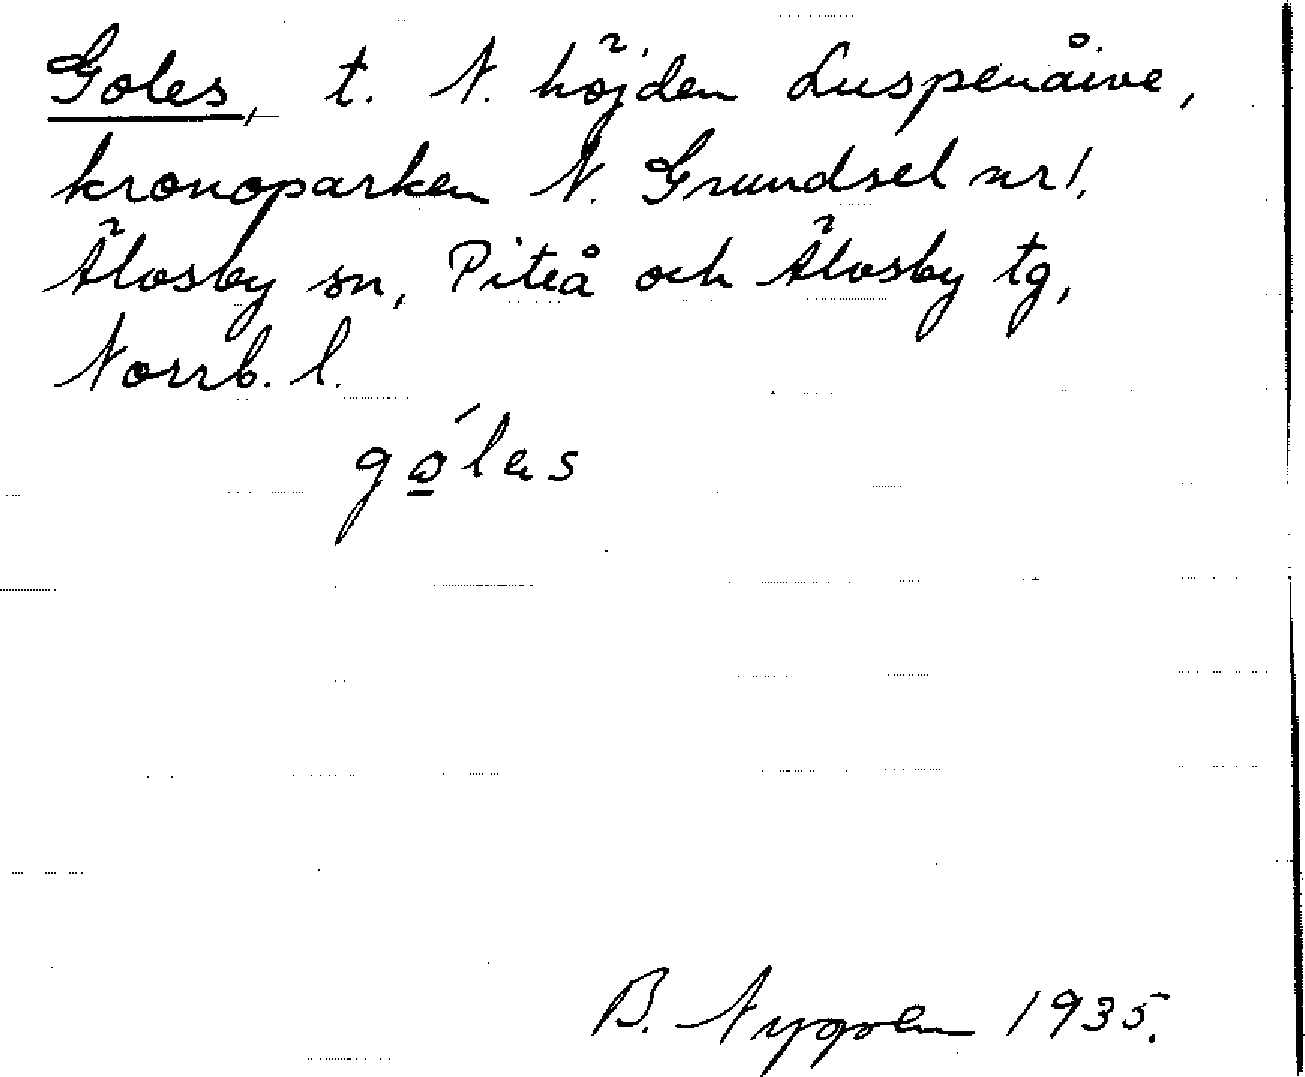 Goles, t. N. höjden Luspenåive,
kronoparken N. Grundsel nr 1,
Älvsby sn, Piteå och Älvsby tg,
Norrb. l.
go̲´les
B. Nygren 1935.